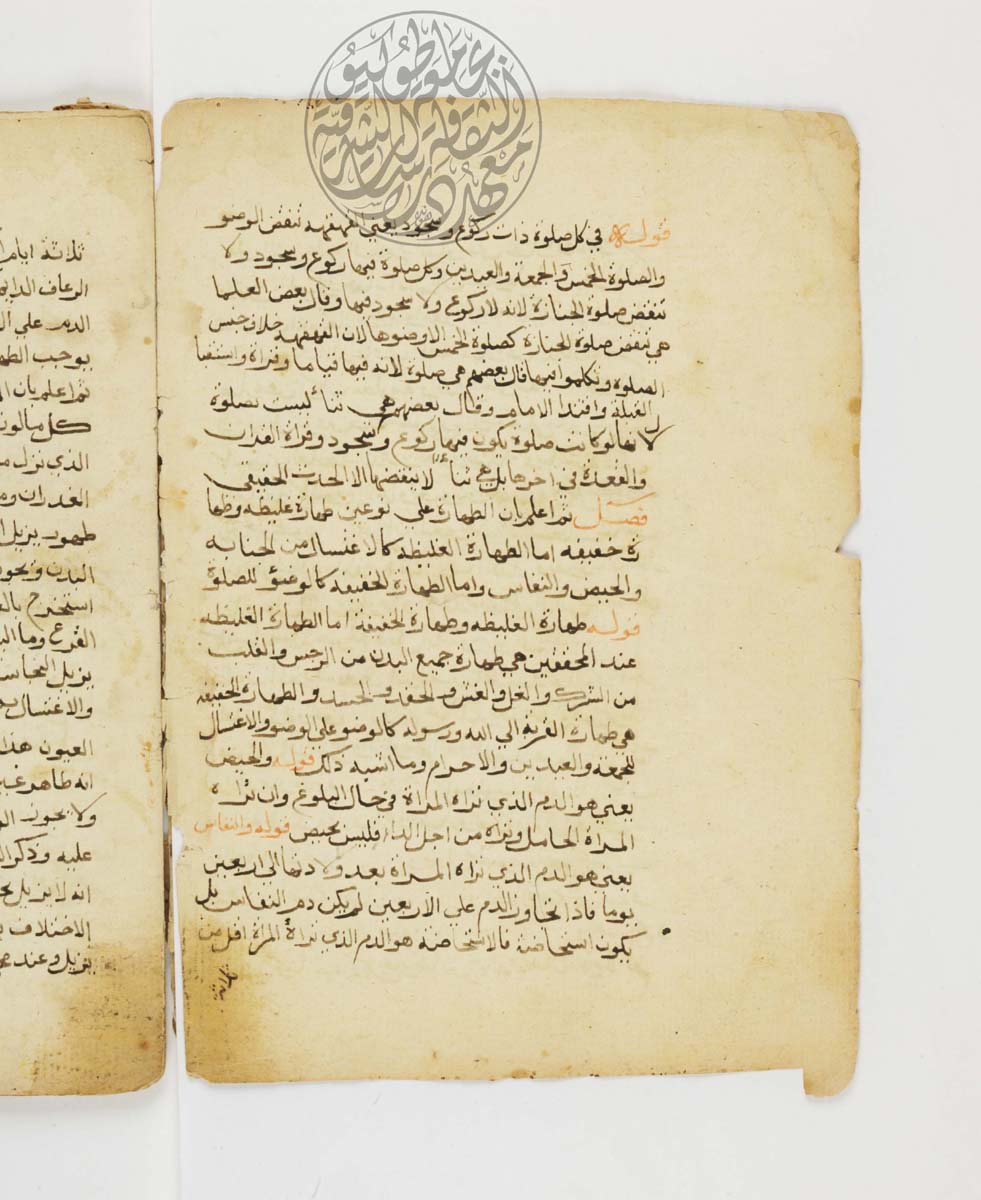 قوله في كل صلوة ذات ركوع وسجود يعني القهقهه تنقض الوضو
والصلوة الخمس والجمعة والعيدين وكل صلوة فيها ركوع وسجود ولا
تنقض صلوة الجنازة لانه لا ركوع ولا سجود فيها وقال بعض العلما
هي تنقض صلوة الجنازة كصلوة الخمس الا وضوها لان القهقهة خلاف جنس
الصلوة وتكلموا فيها قال بعضهم هي صلوة لانه فيها قياما وقراة واستقبا
ل القبلة واقتدا الامام وقال بعضهم هي ثناء ليست بصلوة
لانها لو كانت صلوة يكون فيها ركوع وسجود وقراة القران
والقعدة في اخرها بل هي ثناء لا ينقضها الا الحدث الحقيقي
فصل ثم اعلم بان الطهارة علي نوعين طهارة غليظه وطها
رة خفيفه اما الطهارة الغليظه كالاغتسال من الجنابه
والحيض والنفاس واما الطهارة الخفيفه كالوضؤ للصلوة
قوله طهارة الغليظه وطهارة الخفيفة اما الطهارة الغليظه
عند المحققين هي طهارة جميع البدن من الرجس والقلب
من الشرك والغل والغش والحقد والحسد والطهارة الخفيفه
هي طهارة القربة الي الله ورسوله كالوضو على الوضو والاغتسال
للجمعه والعيدين والاحرام وما اشبه ذلك قوله والحيض
يعني هو الدم الذي تراه المراة في حال البلوغ وان تراه
المراة الحامل وتراه من اجل الداء فليس بحيض قوله والنفاس
يعني هو الدم الذي تراه المراة بعد ولادتها الي اربعين
يوما فاذا تجاوز الدم علي الاربعين لم يكن دم النفاس بل
يكون استحاضة فالاستحاضة هو الدم الذي تراة المراة اقل من
ثلاثة ايام
الرعاف الدايم
الدم علي
يوجب
ثم اعلم بان
كل
الذي نزل
الغدران
طهور يزيل
البدن
استخرج
القرع
يزيل
والاغتسال
العيون هذا
انه طاهر
ولا يجوز
عليه وذكر
انه لا يزيل
الاختلاف
يزيل وعند
معهد الثقافة والدراسات الشرقية